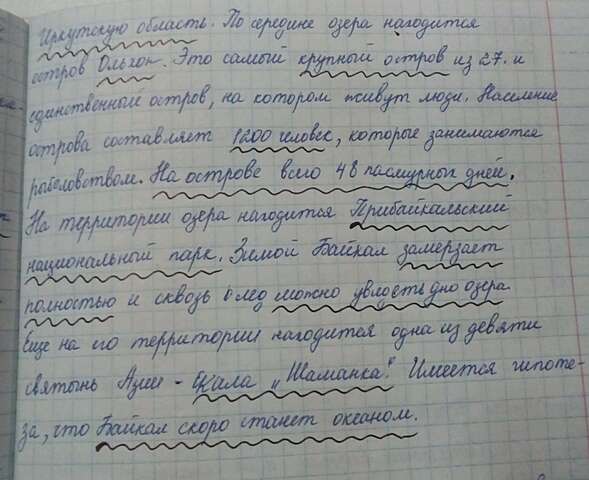 Иркутскую область. По середине озера находится
остров Ольхон. Это самый крупный остров из 27. и
единственный остров, на котором живут люди. Население
острова составляет 1200 человек, которые занимаются
рыболовством. На острове всего 48 пасмурных дней.
На территории озера находится Прибайкальский
национальный парк. Зимой Байкал замерзает
полностью и сквозь лёд можно увидеть дно озера
Еще на его территории находится одна из девяти
святынь Азии - Скала "Шаманка". Имеется гипоте-
за, что Байкал скоро станет океаном.